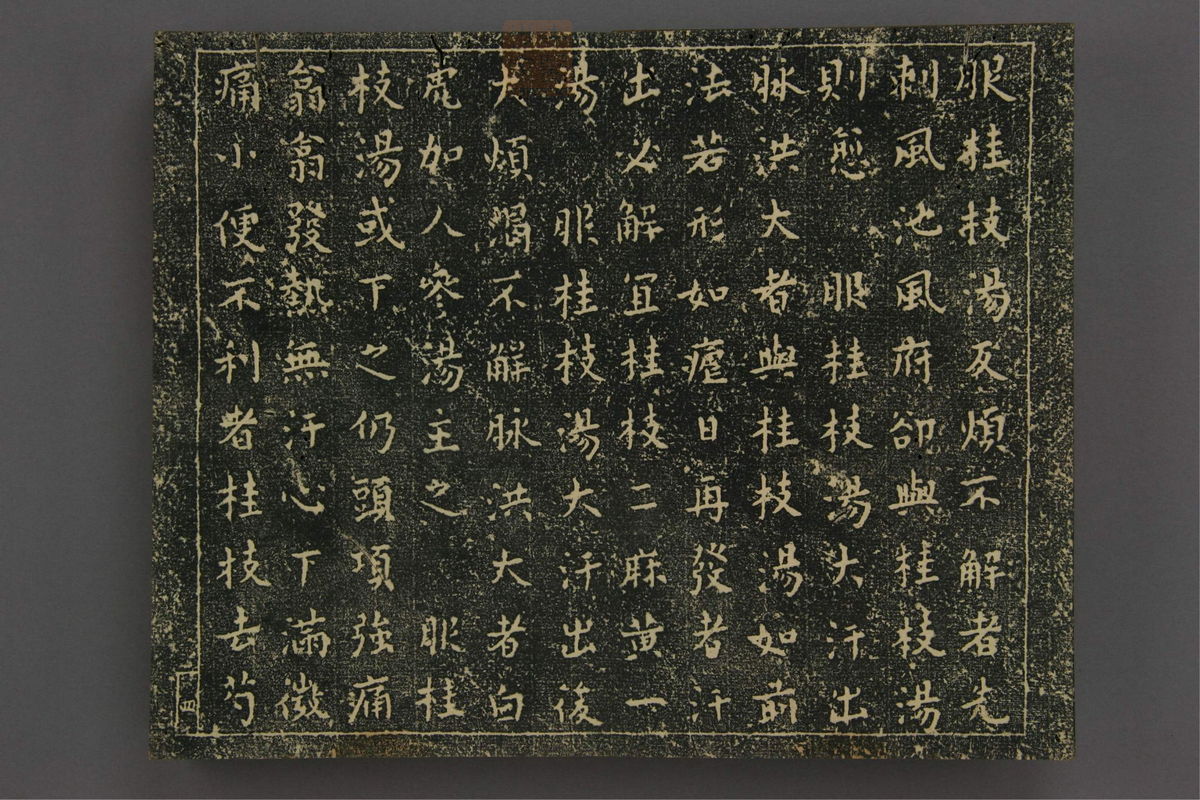 服桂枝湯反煩不解者先
刺風池風府卻與桂枝湯
則愈　服桂枝湯大汗出
脉洪大者與桂枝湯如前
法若形如瘧日再發者汗
出必解宜桂枝二麻黄一
湯　服桂枝湯大汗出後
大煩渴不解脉洪大者白
虎加人參湯主之　服桂
枝湯或下之仍頭項強痛
翕翕發熱無汗心下滿微
痛小便不利者桂枝去芍
四